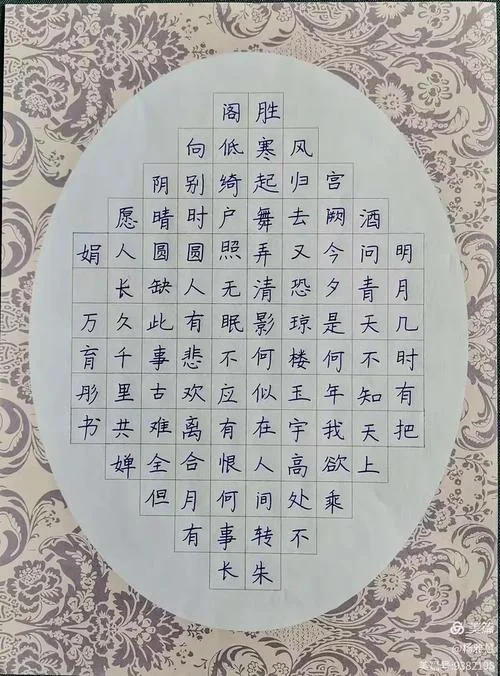 明月几时有把
酒问青天不知天上
宫阙今夕是何年我欲乘
风归去又恐琼楼玉宇高处不
胜寒起舞弄清影何似在人间转朱
阁低绮户照无眠不应有恨何事长
向别时圆人有悲欢离合月有
阴晴圆缺此事古难全但
愿人长久千里共婵
娟 万育彤书
美篇
美篇号:9382195